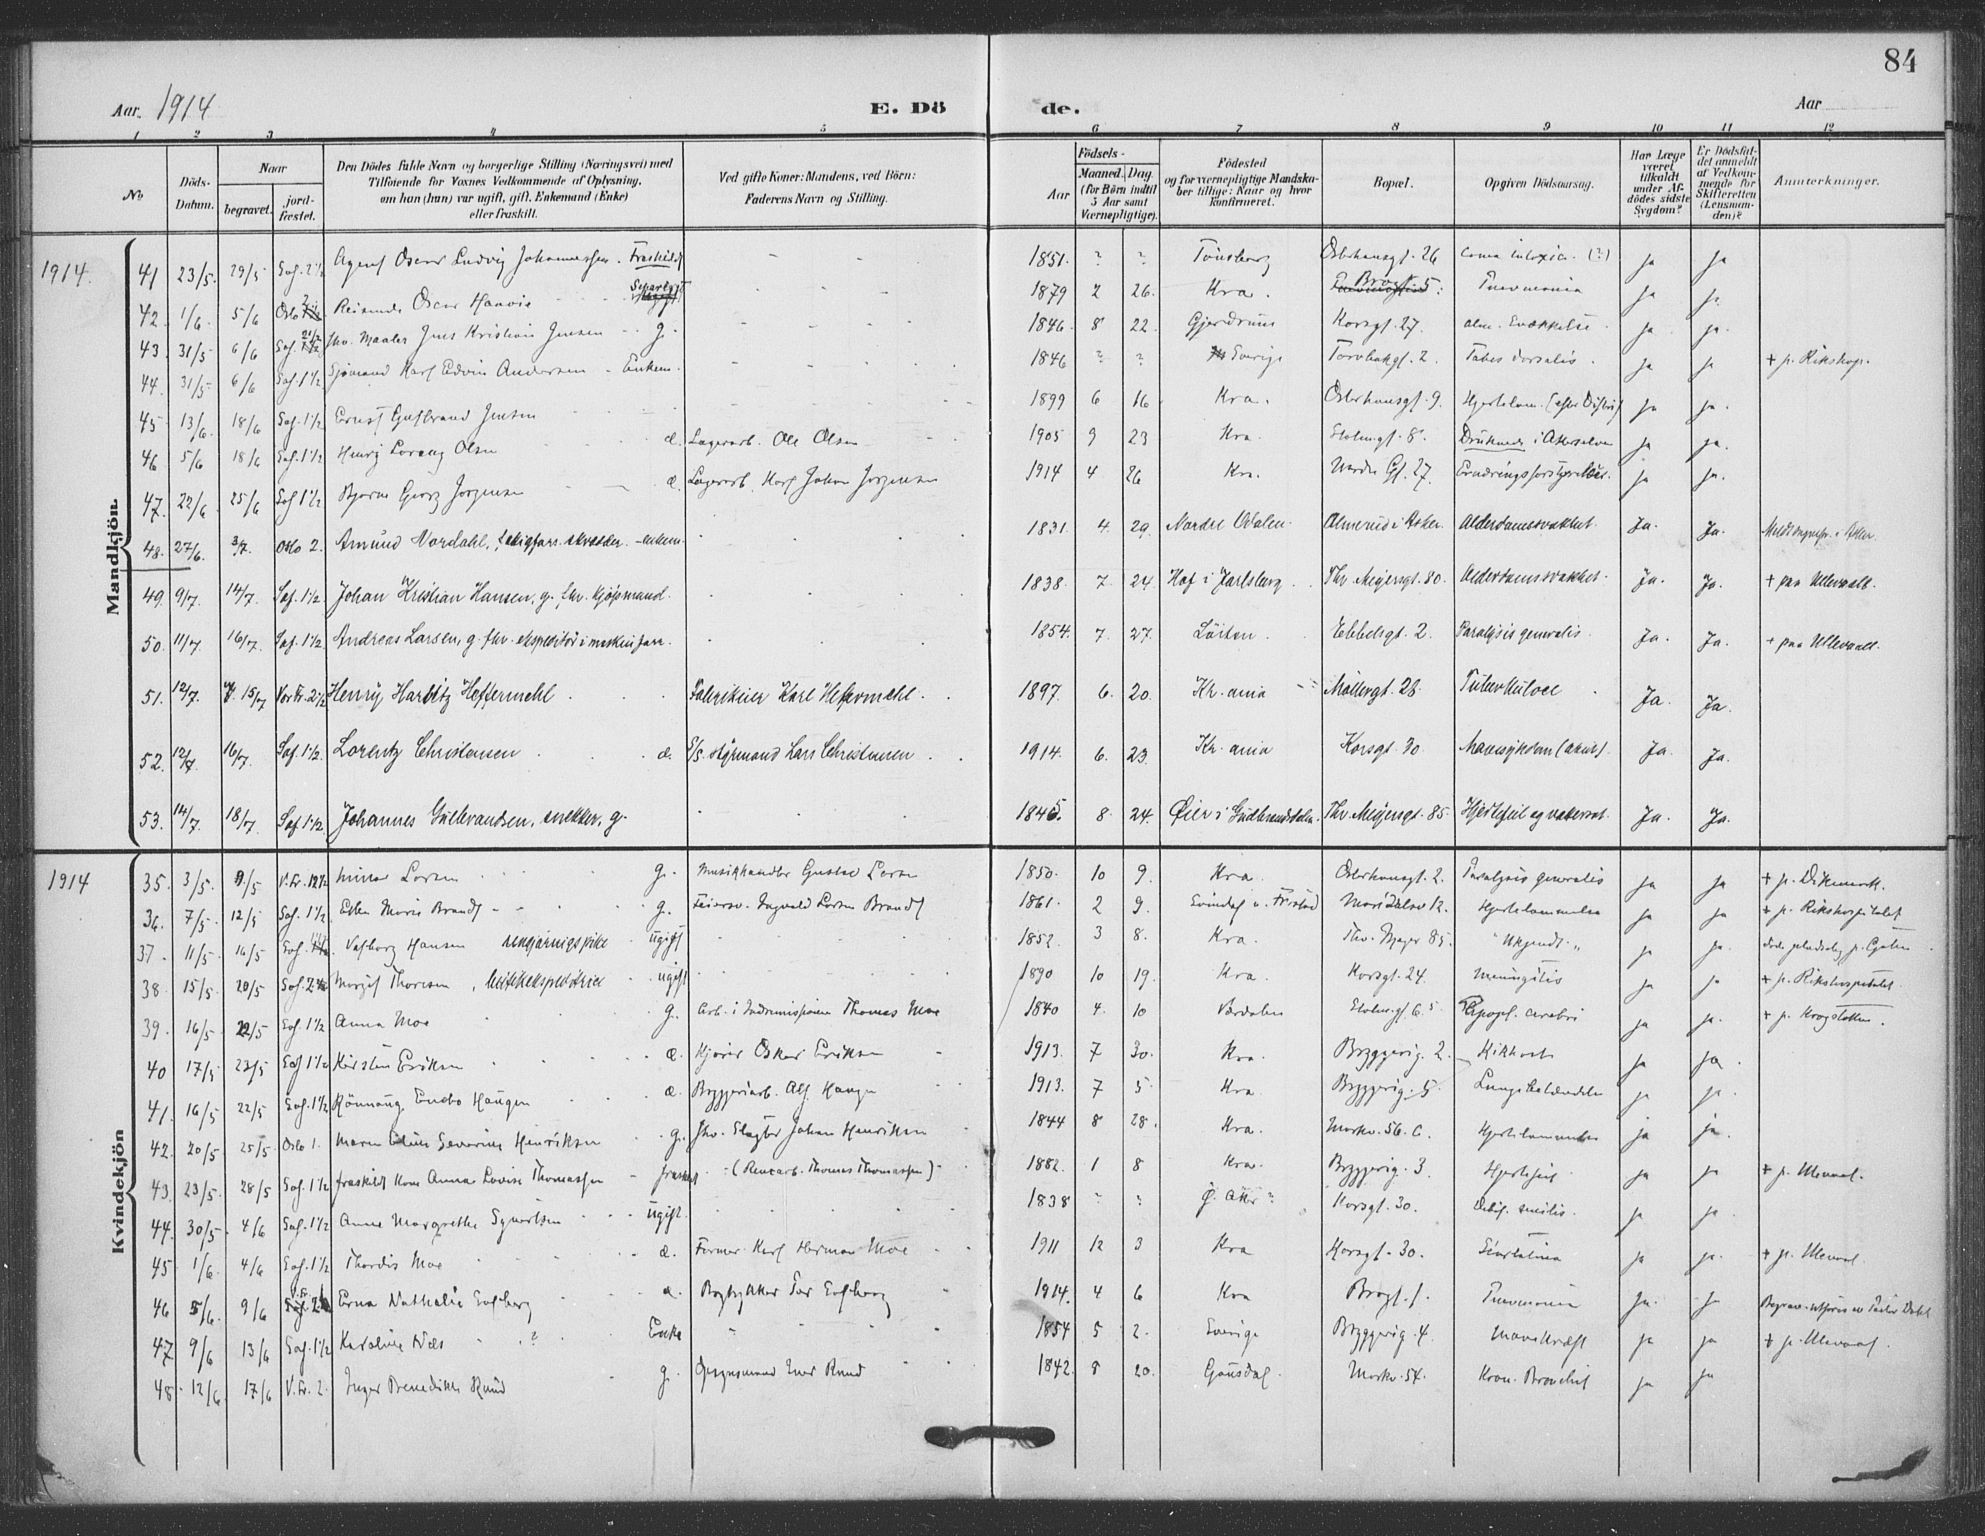 84
Aar. 1914
E. Dö de.
Aar
1 2 3 4 5 6 7 8 9 10 11 12
No
Döds-
Datum.
Naar
begravet.
jord-
fæstet.
Den Dödes fulde Navn og borgerlige Stilling (Næringsvei) med
Tilföiende for Voxnes Vedkommende af Oplysning,
om han (hun) var ugift, gift, Enkemand (Enke)
eller fraskilt.
Ved gifte Koner: Mandens, ved Börn:
Faderens Navn og Stilling.
Födsels-
Aar
Maaned. Dag.
(for Börn indtil
5 Aar samt
Værnepligtige).
Födested
og for værnepligtige Mandska-
ber tillige: Naar og hvor
konfirmeret.
Bopæl.
Opgiven Dödsaarsag.
Har Læge
været
tilkaldt
under Af-
dödes sidste
Sygdom?
Er Dödsfal-
det anmeldt
af Vedkom-
mende for
Skifteretten
(Lensman-
den)?
Anmerkninger.
Mandkjön
1914. 41 23/5. 29/5 Sof. 2 1/2 Agent Oscar Ludvig Johannessen. Fraskildt 1851. ? ? Tönsberg Osterhausgt. 26 Coma intoxica. (?) ja ja
42. 1/6. 5/6 Oslo 2 Reisende Oscar Hanvis Separert 1879 2 26. Kra. Brogt. 5. Pneumonia ja ja.
43. 31/5 6/6 Sof. fhv. Maaler Jens Kristian Jensen g. 1846. 8 22. Gjerdrum Korsgt. 27. alm. Svækkelse ja ja.
44. 31/5 6/6 Sof. 1 1/2 Sjömand Karl Edvin Andersen - Enkem. 1846 ? ? Sverige Torvbakgt. 2. Tabes dorsalis. ja ja + p. Rikshop.
45. 13/6. 18/6 Sof. 1 1/2 Ernst Gulbrand Jensen 1899 6 16 Kra. Osterhausgt. 9. Hjertelam. (efter Difteri) ja ja.
46 5/6 18/6 Sof. 1 1/2 Henry Lorang Olsen æ. Lagerarb. Ole Olsen 1905 9 23 Kra. Stolmgt. 8. Druknede i Akerselven ja ja.
47. 22/6 25/6 Sof 1 1/2 Bjarne Georg Jorgensen æ. Lagerarb. Karl Johan Jorgensen 1914 4 26 Kra. Nordre Gt. 27. Ernæringsforstyrrelser. ja ja.
48. 27/6. 3/7. Oslo 2. Amund Nordahl, skrædder. - enkem. 1831. 4. 29. Nordre Odalen. Almerud i Asker. Alderdomssvakhet. Ja. Ja.
49. 9/7. 14/7. Sof. 1 1/2 Johan Kristian Hansen, g. fhv. kjöpmand. 1838. 7. 24. Hof i Jarlsberg. Thv. Meyersgt. 80. Alderdomssvakhet. Ja. Ja. + paa Ullevaall.
50. 11/7. 16/7. Sof. 1 1/2. Andreas Larsen, g. fhv. ekspeditör i maskinforr. 1854. 7. 27. Löiten. Ebbelsgt. 2. Paralysis generalis. Ja. Ja. + paa Ullevaall.
51. 12/7. 15/7 Vor Fr. 2 1/2 Henry Harbitz Heffermehl. Fabrikeier Karl Heffermehl. 1897. 6. 20. Kr.ania Möllergt. 28. Tuberkulose Ja. Ja.
52. 12/7 16/7. Sof. 1 1/2. Lorentz Christensen æ. S/S. styrmand Lars Christensen. 1914. 6. 23. Kr.ania Korsgt. 30. Mavesykdom (akut). Ja. Ja.
53. 14/7. 18/7. Sof. 1 1/2. Johannes Gullevandsen, snekker, g. 1845. 8. 24. Øier i Gudbrandsdalen. Thv. Meyersgt. 85. Hjertefeil og vattersot. Ja. Ja.
Kvindekjön
1914 35. 3/5. 9/5 V. Fr. 12 1/2 Larsen g. Musikhandler Gustav Larsen 1850. 10 9. Kra. Osterhausgt. 2. Paralysis generalis ja ja + p. Dikemark.
36. 7/5 12/5 Sof. 1 1/2 Ellen Marie Brandt g. Feiersv. Ingvald Larsen Brandt 1861. 2 9. Svindal v. Fr.stad Maridalsv 12. Hjertelammelse ja ja + p. Rikshospitalet
37. 11/5 16/5 Sof. Valborg Hansen rengjöringspike ugift 1852. 3 8. Kra. Thv. Meyer 85. "Ukjendt" ja ja. döde pludselig p. Gaten
38. 15/5 20/5 Sof. Margit Thoresen, butikekspeditrice ugift 1890 10 19. Kra. Korsgt. 24. Meningitis ja ja + p. Rikshospitalet.
39. 16/5 22/5 Sof. 1 1/2 Anna Moe g. Arb. i Indremissionen Thomas Moe 1840 4. 10 Værdalen Stolmgt. 6. Apopl. cerebri ja ja. + p. Krogstötten.
40 17/5 23/5 Sof 1 1/2 Kirsten Eriksen æ. Kjörer Oskar Eriksen 1913. 7 30. Kra. Bryggerig. 2. Kikhoste ja ja
41. 16/5 22/5 Sof. 1 1/2 Rönnaug Enebo Haugen æ. Bryggeriarb. Alf Haugen 1913. 7 5 Kra. Bryggerig. 5. Lungebetændelse ja ja.
42. 20/5 25/5 Oslo 1. Maren Severine Henriksen g. fhv. Slagter Johan Henriksen 1844 8 28. Kra. Markv. 56. C. Hjertelammelse ja ja.
43. 23/5. 28/5 Sof. 1 1/2 fraskilt Kone Anna Lovise Thomassen - fraskilt (Renarb. Thomas Thomassen) 1882. 1 8 Kra. Bryggerig. 3 Hjertefeil ja ja + p. Ullevaal.
44. 30/5. 4/6 Sof. 1 1/2 Anne Margrethe Syvertsen ugift. 1838 ? ? Ø. Aker? Korsgt. 30. Debil. senilis. ja ja
45 1/6. 4/6 Sof. 1 1/2 Thordis Moe æ. Former Karl Herman Moe 1911 12 3 Kra Korsgt. 30. Scarlatina ja ja. + p. Ulevaal
46 5/6. 9/6 V. Fr. Erna Nathalie Solberg æ. Bogtrykker Solberg 1914. 4 6 Kra Brogt. 1. Pneumonia ja. ja
47 9/6 13/6 Sof. 1 1/2 Karoline Næs ? Enke 1854 5 2. Sverige Bryggerig. 4 Mavekræft ja ja + p. Ulevaal.
48. 12/6. 17/6 V. Fr. 2. Inger Benedikte Ruud g. Opsynsmand Iver Ruud 1842. 8 20. Gausdal. Markv. 54. Kron. Bronchit ja ja